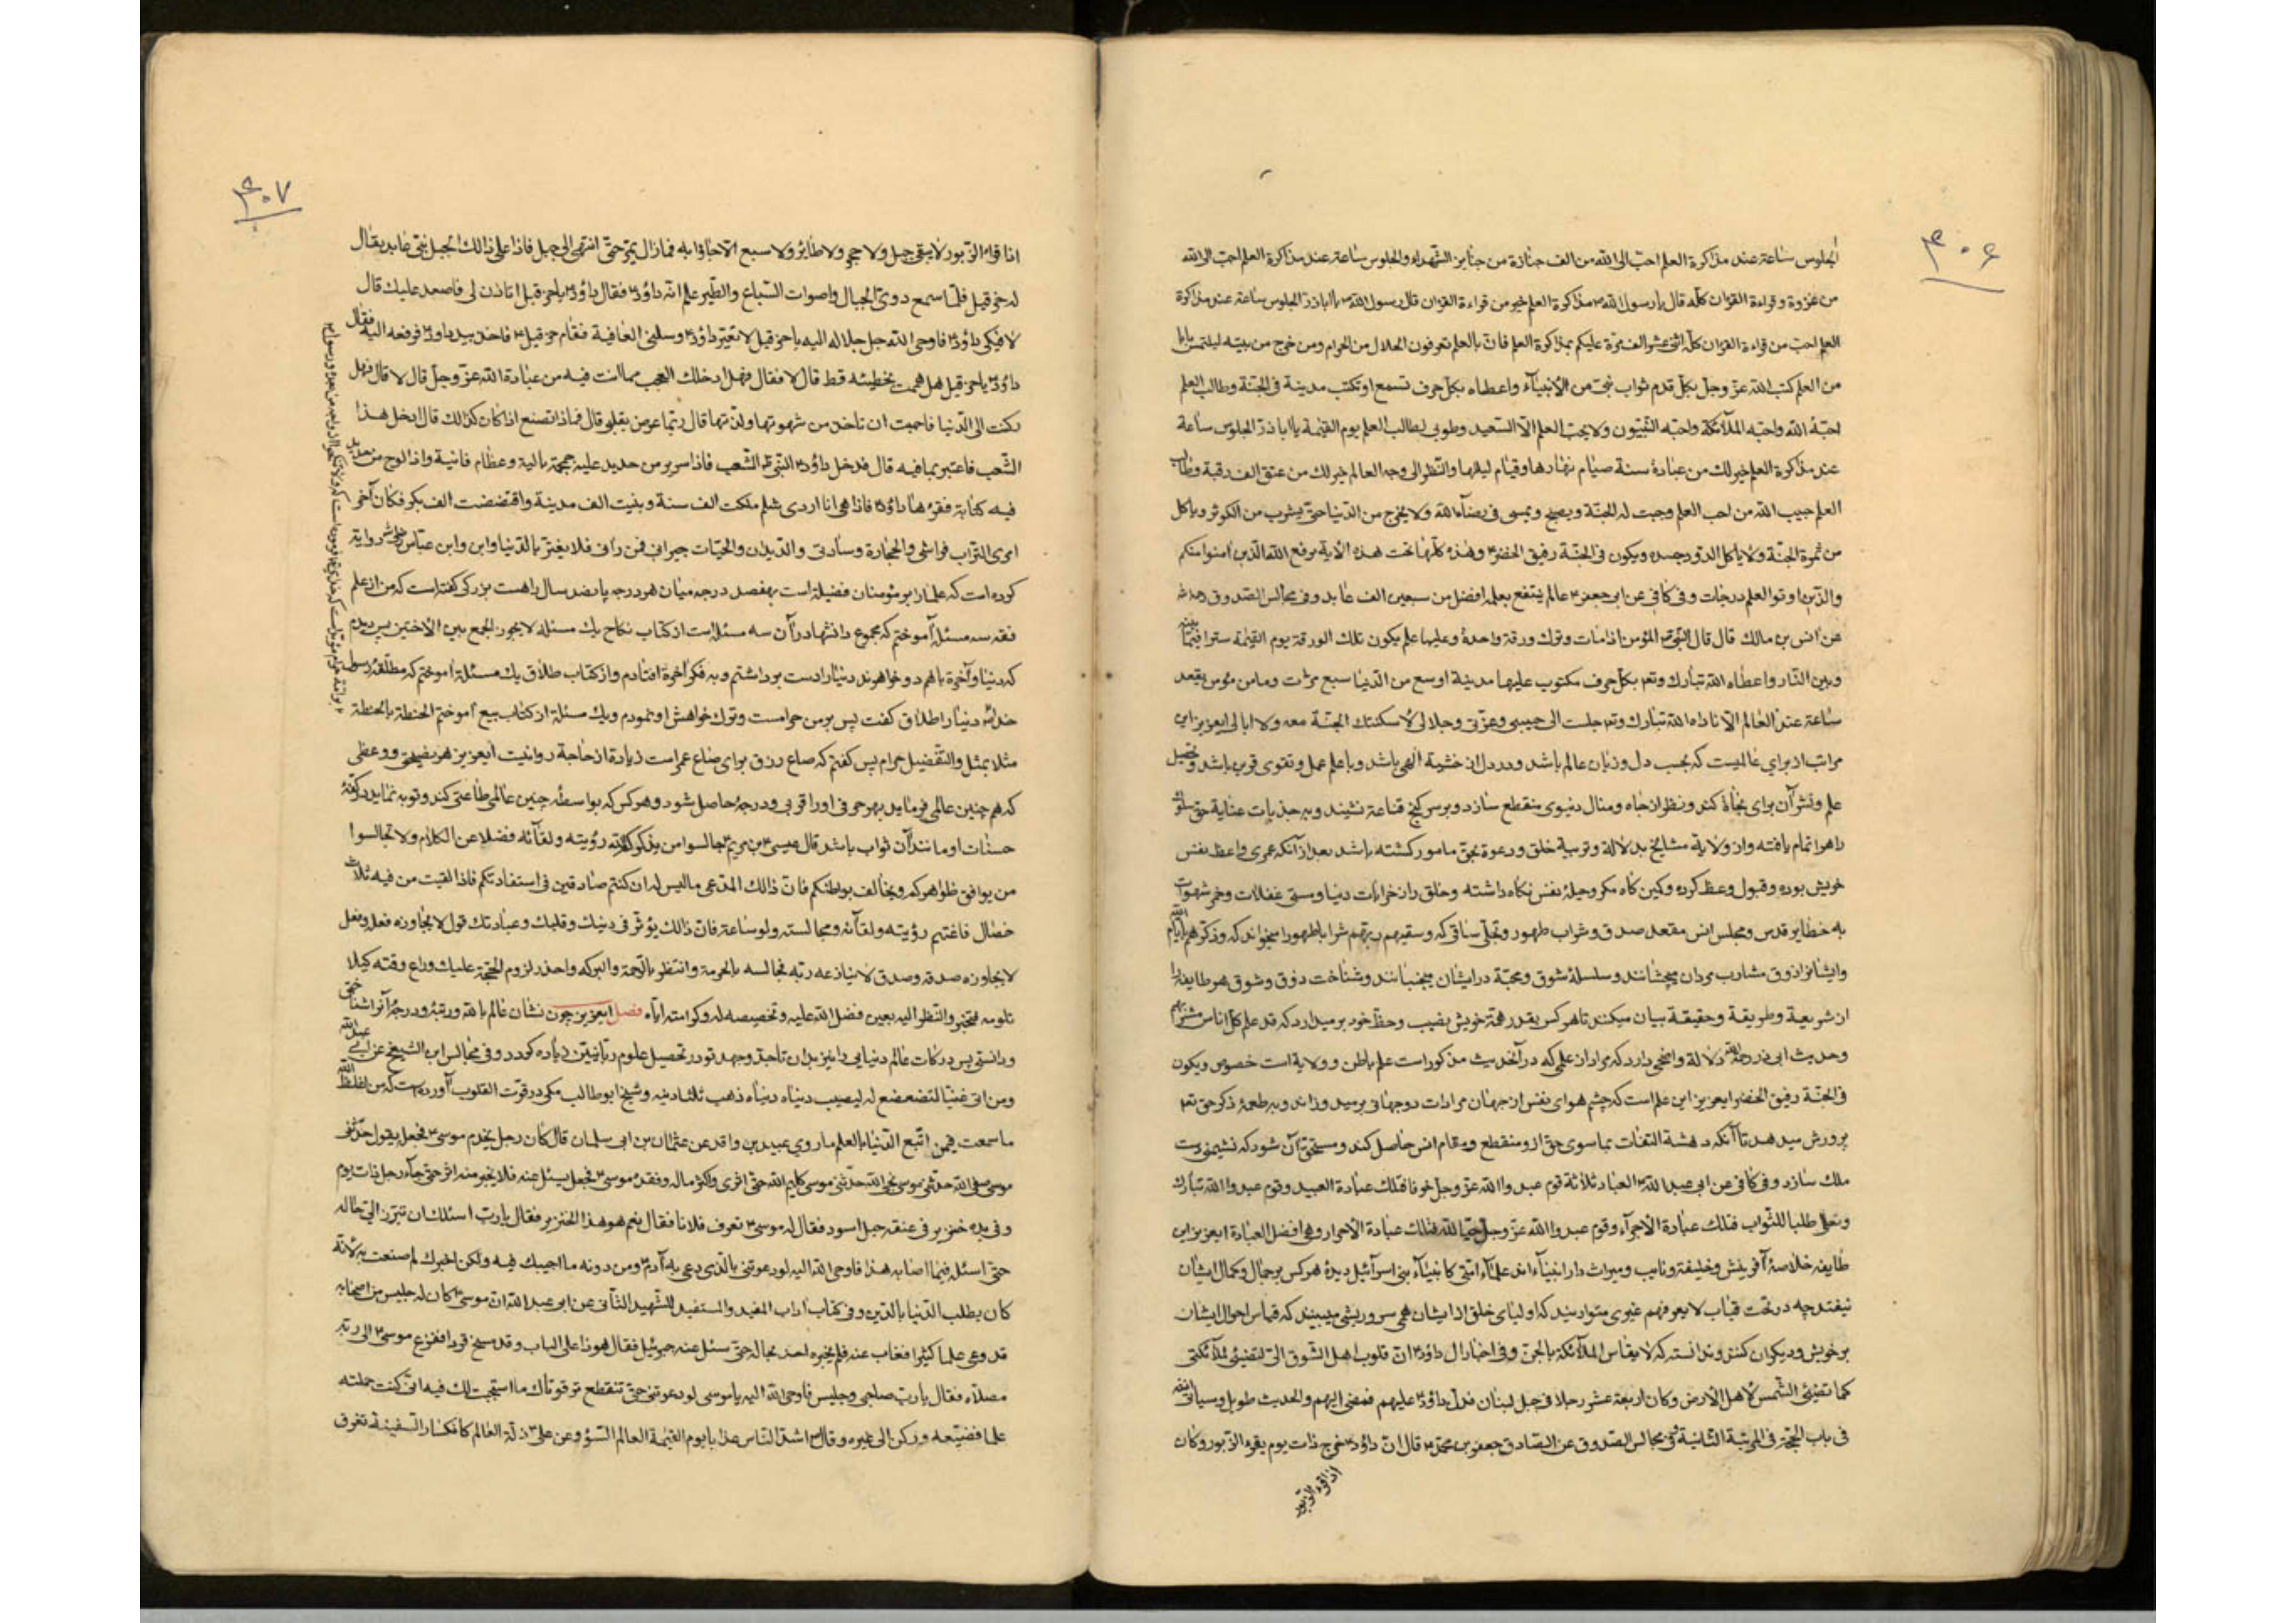 ۴۰۶
الجلوس ساعة عند مذاکرة العلم احبّ الی الله من الف جنازة من جنایز الشهداء والجلوس ساعة عند مذاکرة العلم احبّ الی الله
من غزوة وقراءة القران کلّه قال یا رسول الله مذاکرة العلم خیر من قراءة القران قال رسول الله یا اباذر الجلوس ساعة عند مذاکرة
العلم احب من قراءة القران کلّه اثنی عشر الف مرّة علیکم بمذاکرة العلم فان بالعلم تعرفون الحلال من الحرام ومن خرج من بیته لیلتمس بابا
من العلم کتب الله عزّ وجلّ بکلّ قدم ثواب نبیّ من الأنبیآء واعطاه بکلّ حرف تسمع او تکتب مدینة فی الجنّة وطالب العلم
احبّه الله واحبّه الملآئکة واحبّه النّبیّون ولا یحبّ العلم الّا السّعید وطوبی لطالب العلم یوم القیٰمة یا اباذرّ الجلوس ساعة
عند مذاکرة العلم خیر لك من عبادة سنة صیام نهارها وقیام لیلها والنّظر الی وجه العالم خیر لك من عتق الف رقبة وطالب
العلم حبیب الله من احب العلم وجبت له الجنّة ویصبح ویمسی فی رضآء الله ولا یخرج من الدّنیا حتّی یشرب من الکوثر ویاکل
من ثمرة الجنّة ولا یاکل الدّود جسده ویکون فی الجنّة رفیق الخضر وهذه کلّها تحت هذه الآیة یرفع الله الذین امنوا منکم
والذین اوتوا العلم درجات وفی کافی عن ابی جعفر عالم ینتفع بعلمه افضل من سبعین الف عابد وفی مجالس الصّدوق
عن انس بن مالك قال قال النّبیّ المؤمن اذا مات وترك ورقة واحدة وعلیها علم یکون تلك الورقة یوم القیٰمة سترا فیما بینه
وبین النّار واعطاه الله تبارك وتع بکلّ حرف مکتوب علیها مدینة اوسع من الدّنیا سبع مرّات وما من مؤمن یقعد
ساعة عند العالم الّا ناداه الله تبارك وتع جلست الی حبیبی وعزّتی وجلالی لأسکنتك الجنّة معه ولا ابالی ایعزیز این
مراتب از برای عالمیست که بحسب دل وزبان عالم باشد ودر دل ان خشیة الٰهی باشد وبا علم عمل وتقوی قرین باشد وتحصیل
علم ونشر آن برای نجاة کند ونظر از جاه ومنال دنیوی منقطع سازد وبر سر کنج قناعة نشیند وبه جذبات عنایة حق سلوك
راه را تمام یافته واز ولایة مشایخ بدلالة وتربیة خلق ودعوة بحق مامور کشته باشد بعد از آنکه عمری واعظ نفس
خویش بوده وقبول وعظ کرده وکین کاه مکر وحیلهٔ نفس نکاه داشته وخلق را از خرابات دنیا ومستی غفلات وخمر شهوات
به خطایر قدس ومجلس انس مقعد صدق وشراب طهور وتجلّی ساقی که وسقیهم ربّهم شرابا طهورا میخواند که وذکّرهم بایّام الله
وایشانرا ذوق مشارب مردان میچشانند وسلسلهٔ شوق ومحبّة در ایشان میجنبانند وشناخت ذوق وشوق هر طایفه را
از شریعة وطریقة وحقیقة بیان میکنند تا هر کس بقدر همّة خویش نصیب وحظّ خود بر میدارد که قد علم کلّ اناس مشربهم
وحدیث ابی ذر رحمه الله دلالة واضحی دارد که مراد از علمی که در آنحدیث مذکور است علم باطن وولایة است خصوص ویکون
فی الجنّة رفیق الخضر ایعزیز این علم است که چشم هوای نفس از جهان مرادات دوجهانی بر میدوزاند وبه طعمهٔ ذکر حق تع
پرورش میدهد تا آنکه دهشة التفات بما سوی حق از ومنقطع ومقام انس حاصل کند ومستحقّ آن شود که نشیمن دست
ملك سازد وفی کافی عن ابی عبد الله العباد ثلاثة قوم عبدوا الله عزّ وجلّ خوفا فتلك عبادة العبید وقوم عبدوا الله تبارك
وتعالی طلبا للثّواب فتلك عبادة الأجرآء وقوم عبدوا الله عزّ وجلّ حبّا لله فتلك عبادة الأحرار وهی افضل العبادة ایعزیز این
طایفه خلاصهٔ آفرینش وخلیفة ونایب ومیراث دار انبیاء اند علمآء امّتی کانبیآء بنی اسرآئیل دیدهٔ هر کس بر جمال وکمال ایشان
نیفتد چه در تحت قباب لا یعرفهم غیری متواریند که اولیای خلق از ایشان همی سر وریشی میبینند که قیاس احوال ایشان
بر خویش ودیکران کنند وندانسته که لا یقاس الملآئکة بالجنّ وفی اخبار ال داؤد انّ قلوب اهل الشّوق الیّ لتضیئ لملآئکتی
کما تضیئ الشّمس لأهل الأرض وکان اربعة عشر رجلا فی جبل لبنان فدلّ داؤد علیهم فمضی الیهم والحدیث طویل وسیاتی انشآء الله
فی باب المحبّة فی المرتبة الثّانیة وفی مجالس الصّدوق عن الصّادق جعفر بن محمّد قال انّ داؤد خرج ذات یوم یقرء الزّبور وکان
اذا قرء الزّبور
۴۰۷
اذا قرء الزّبور لا یبقی جبل ولا حجر ولا طایر ولا سبع الّا جاوبه فما زال یمرّ حتّی انتهی الی جبل فاذا علی ذالك الجبل نبیّ عابد یقال
له حزقیل فلمّا سمع دویّ الجبال واصوات السّباع والطّیر علم انّه داؤد فقال داؤد یا حزقیل اتاذن لی فاصعد علیك قال
لا فبکی داؤد فاوحی الله جلّ جلاله الیه یا حزقیل لا تعیّر داؤد وسلنی العافیة فقام حزقیل فاخذ بید داود فرفعه الیه فقال
داؤد یا حزقیل هل هممت بخطیئة قط قال لا فقال فهل دخلك العجب مما انت فیه من عبادة الله عزّ وجلّ قال لا قال فهل
رکنت الی الدّنیا فاحببت ان تاخذ من شهوتها ولذّتها قال ربّما عرض بقلبی قال فماذا تصنع اذا کان کذالك قال ادخل هذا
الشّعب فاعتبر بما فیه قال فدخل داؤد النّبی الشّعب فاذا سریر من حدید علیه جمجمة بالیة وعظام فانیة واذا لوح من حدید
فیه کتابة فقرءها داؤد فاذا هی انا اردی شلم ملکت الف سنة وبنیت الف مدینة واقتضضت الف بکر فکان آخر
امری التّراب فراشی والحجارة وسادتی والدّیدان والحیّات جیرانی فمن رآنی فلا یغترّ بالدّنیا وابن عبّاس روایة
کرده است که علما را بر مؤمنان فضیلة است بهفصد درجه میان هر درجه پانصد سال راهست بزرکی کفته است که من از علم
فقه سه مسئله آموختم که مجموع دانشها در آن سه مسئله است از کتاب نکاح یك مسئله لا یجوز الجمع بین الأختین پس دیدم
که دنیا وآخرة با هم دو خواهرند دنیا را دست برداشتم وبه فکر اخرة افتادم واز کتاب طلاق یك مسئلة اموختم که مطلّقهٔ رسول
خدا دنیا را طلاق کفت پس بر من حرامست وترك خواهش او نمودم ویك مسئلة از کتاب بیع آموختم الحنطة بالحنطة
مثلا بمثل والتّفضیل حرام پس کفتم که صاع رزق برای صاع عمر است زیادة از حاجة روا نیست ایعزیز هر نصیحتی ووعظی
که هم چنین عالمی فرماید بهر حرفی او را قربی ودرجهٔ حاصل شود وهر کس که بواسطهٔ چنین عالمی طاعتی کند وتوبه نماید در کفّهٔ
حسنات او مانند آن ثواب باشد قال عیسی بن مریم جالسوا من یذکّرکم الله رؤیته ولقآئه فضلا عن الکلام ولا تجالسوا
من یوافق ظواهرکم ویخالف بواطنکم فانّ ذالك المدّعی ما لیس له ان کنتم صادقین فی استفادتکم فاذا لقیت من فیه ثلاث
خصال فاغتنم رؤیته ولقآئه ومجالسته ولو ساعة فانّ ذالك یؤثّر فی دینك وقلبك وعبادتك قول لا یجاوزه فعله وفعل
لا یجاوزه صدقه وصدق لا ینازعه ربّه فجالسه بالحرمة وانتظر بالرّحمة والبرکة واحذر لزوم الحجّة علیك وراع وقته کیلا
تلومه فتخسر والنظر الیه بعین فضل الله علیه وتخصیصه له وکرامته ایّاه فصل ایعزیز چون نشان عالم بالله ورتبه ودرجهٔ آنرا شناختی
ودانستی پس درکات عالم دنیایی را نیز بدان تا جدّ وجهد تو در تحصیل علوم ربّانیّین زیاده کردد وفی مجالس ابن الشّیخ عن ابی عبد الله
ومن اتی غنیّا لتضعضع له لیصیب دنیاه ذهب ثلثا دینه وشیخ ابو طالب مکّی در قوّت القلوب آورده است که من اغلظ
ما سمعت فیمن اتّبع الدّنیا بالعلم ما روی عبید بن واقد عن عثمان بن ابی سلمان قال کان رجل یخدم موسی فجعل یقول حدّثنی
موسی صفی الله حدّثنی موسی نجی الله حدّثنی موسی کلیم الله حتّی اثری وکثر ماله وفقده موسی فجعل یسئل عنه فلا یخبر منه اثر حتّی جآءه رجل ذات یوم
وفی یده خنزیر فی عنقه حبل اسود فقال له موسی تعرف فلانا فقال نعم هو هذا الخنزیر فقال یا ربّ اسئلك ان تردّه الی حاله
حتّی اسئله فیما اصابه هذا فاوحی الله الیه لو دعوتنی بالّذی دعی به آدم ومن دونه ما اجیبك فیه ولکن اخبرك لم صنعت به لأنّه
کان یطلب الدّنیا بالدّین وفی کتاب اداب المفید والمستفید للشّهید الثّانی عن ابی عبد الله انّ موسی کان له جلیس من اصحابه
قد وعی علما کثیرا فغاب عنه فلم یخبره احد بحاله حتّی سئل عنه جبرئیل فقال هوذا علی الباب وقد مسخ قردا ففزع موسی الی ربّه
مصلّاه فقال یا ربّ صاحبی وجلیسی فاوحی الله الیه یا موسی لو دعوتنی حتّی تنقطع ترقوتاك ما استجبت لك فیه انّی کنت حمّلته
علما فضیّعه ورکن الی غیره وقال اشدّ النّاس عذابا یوم القیٰمة العالم السّوٓء وعن علی زلّة العالم کانکسار السّفینة تغرق